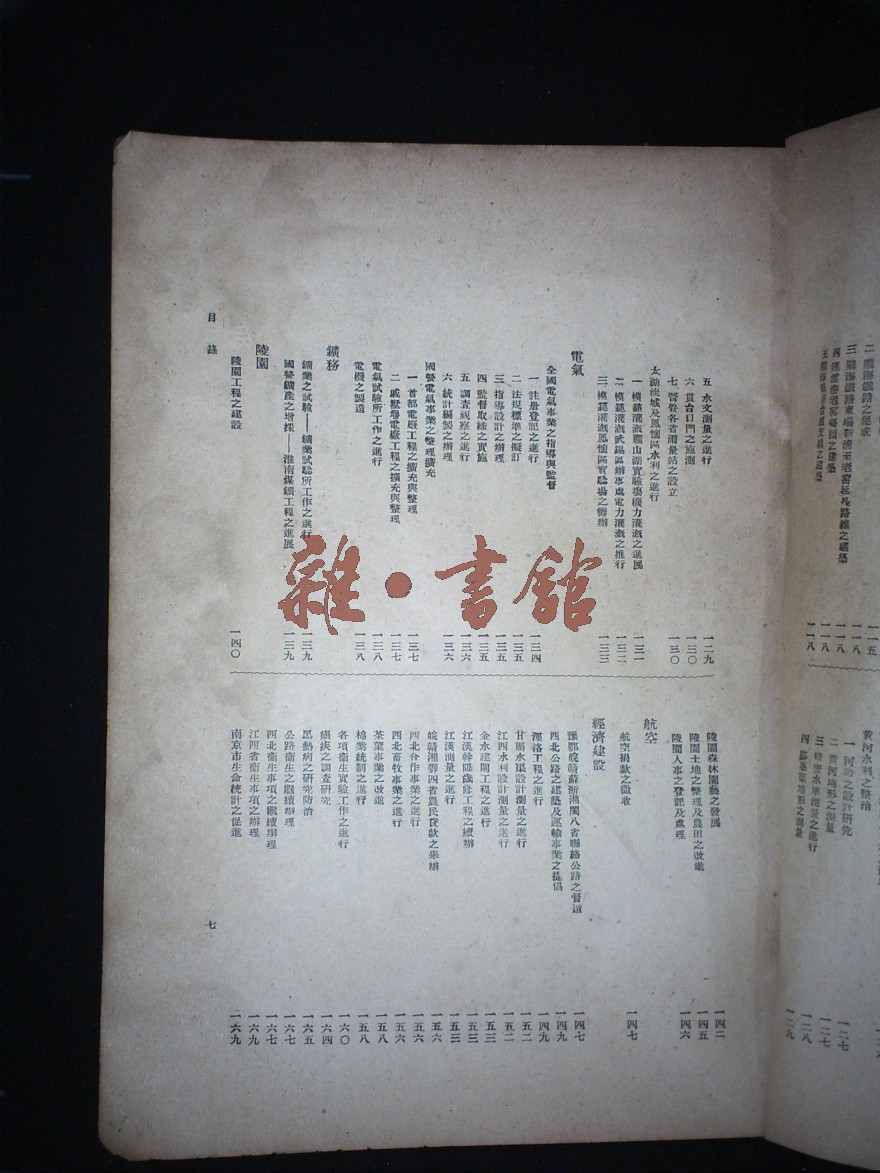 五 水文測量之進行 一二九
六 貫台口門之施測 一三〇
七 督營各省雨量站之設立 一三〇
太湖流域及鳳懷區水利之進行
一 模範灌溉龐山湖實驗場機力灌溉之進展 一三一
二 模範灌溉武錫區辦事處電力灌溉之推行 一三二
三 模範灌溉鳳懷區實驗場之籌辦 一三三
電氣
全國電氣事業之指導與監督
一 註册登記之進行 一三四
二 法規標準之擬訂 一三五
三 指導設計之辦理 一三五
四 監督取締之實施 一三五
五 調查視察之進行 一三六
六 統計編製之辦理 一三六
國營電氣事業之整理擴充
一 首都電廠工程之擴充與整理 一三七
二 戚墅堰電廠工程之擴充與整理 一三七
電氣試驗所工作之進行 一三八
電機之製造 一三八
鑛務
鑛業之試驗——鑛業試驗所工作之進行 一三九
國營鑛產之增採——淮南煤鑛工程之進展 一三九
陵園
陵園工程之建設 一四〇
陵園森林園藝之發展 一四二
陵園土地之整理及農田之改進 一四五
陵園人事之登記及處理 一四六
航空
航空捐款之徵收 一四七
經濟建設
豫鄂皖贛蘇浙湘閩八省聯絡公路之督造 一四七
西北公路之建築及運輸事業之提倡 一四九
涇洛工程之進行 一四九
甘肅水渠設計測量之進行 一五二
江西水利設計測量之進行 一五二
金水建閘工程之進行 一五三
江漢幹堤歲修工程之續辦 一五三
江漢測量之進行 一五三
皖贛湘鄂四省農民貸款之舉辦 一五六
西北合作事業之進行 一五六
西北畜牧事業之進行 一五六
茶葉事業之改進 一五八
棉業統制之進行 一五八
各項衛生實驗工作之進行 一六〇
瘧疾之調查研究 一六四
黑熱病之研究防治 一六五
公路衛生之繼續辦理 一六七
西北衛生事項之繼續辦理 一六七
江西省衛生事項之辦理 一六九
南京市生命統計之促進 一六九
目錄
七
二 隴海鐵路之完成 一一五
三 隴海鐵路東端新浦至老窰延長路線之建築 一一八
黃河水利之整治
一 河防之設計研究 一二七
二 黃河地形之測量 一二七
三 精密水準測量之進行 一二八
雜·書館